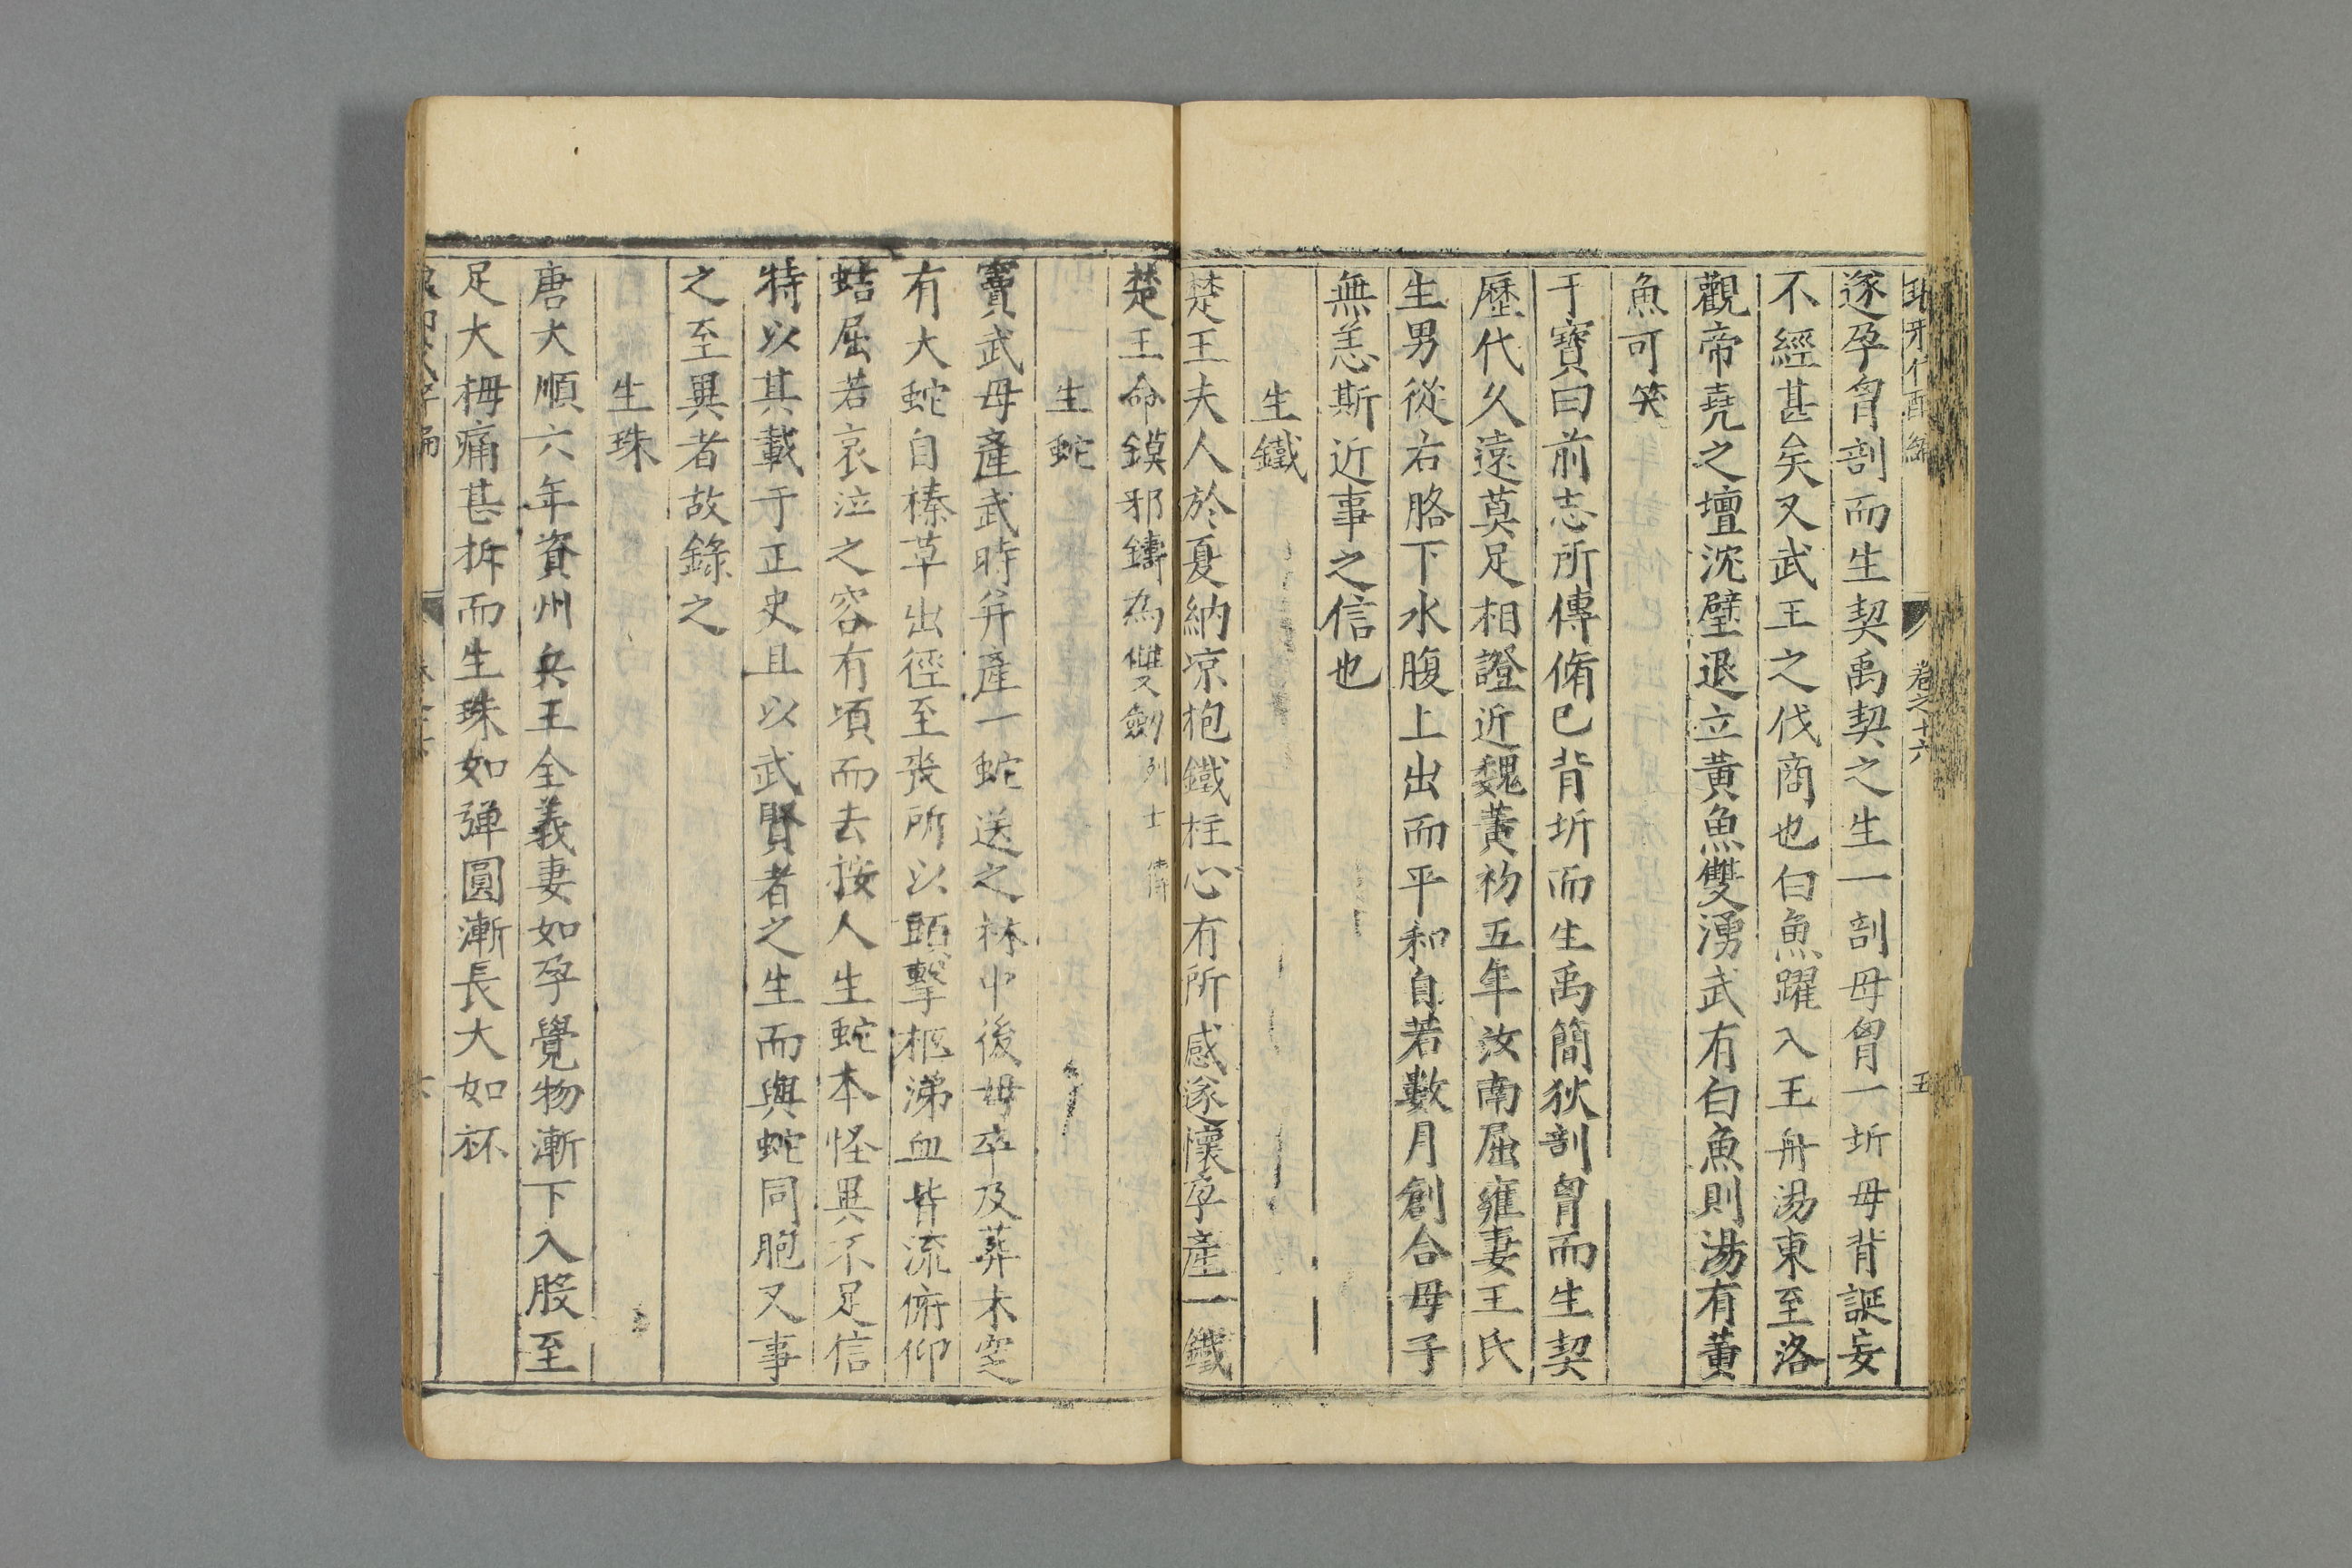 卷之十六
五
遂孕胷剖而生契禹契之生一剖母胷一坼母背誕妄
不經甚矣又武王之伐商也白魚躍入王舟湯東至洛
觀帝堯之壇沈璧退立黃魚雙湧武有白魚則湯有黃
魚可笑
干寶曰前志所傳脩巳背坼而生禹簡狄剖胷而生契
歷代久遠莫足相證近魏黃初五年汝南屈雍妻王氏
生男從右胳下水腹上出而平和自若數月創合母子
無恙斯近事之信也
生鐵
楚王夫人於夏納凉抱鐵柱心有所感遂懷孕產一鐵
楚王命鏌邪鑄為雙劍列士傳
生蛇
竇武母產武時并產一蛇送之林中後母卒及葬未窆
有大蛇自榛草出徑至喪所以頭擊柩涕血皆流俯仰
蛣屈若哀泣之容有頃而去按人生蛇本怪異不足信
特以其載于正史且以武賢者之生而與蛇同胞又事
之至異者故錄之
生珠
唐大順六年資州兵王全義妻如孕覺物漸下入股至
足大拇痛甚拆而生珠如彈圓漸長大如杯
六